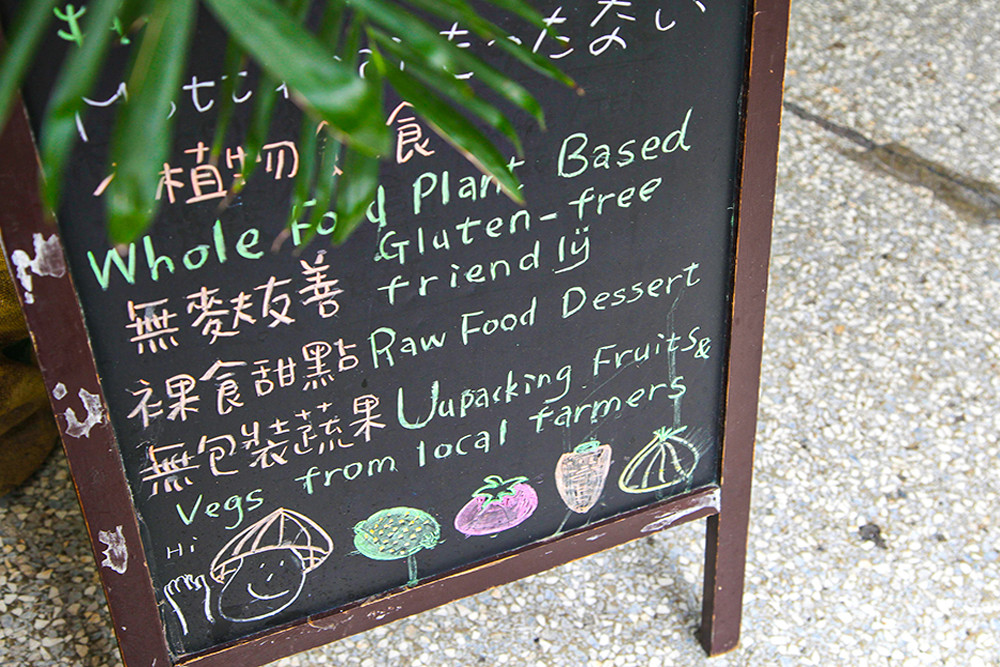 ったない
植物 食
Whole Food Plant Based
無麥麩友善 Gluten-free
friendly
裸食甜點 Raw Food Dessert
無包裝蔬果 Uupacking Fruits&
Vegs from local farmers
Hi